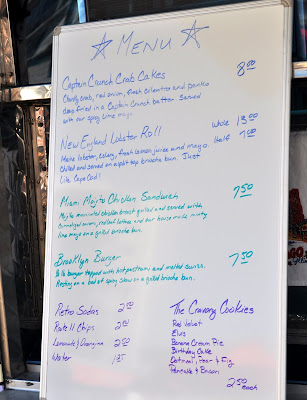 MENU
Captain Crunch Crab Cakes 8.00
Chunky crab, red onion, fresh cilantro and poncho
deep fried in a Captain Crunch batter. Served
with our spicy lime mayo.
New England Lobster Roll Whole 13.50
Half 7.00
Maine lobster, celery, fresh lemon juice and mayo.
Chilled and served on a split top brioche bun. Just
like Cape Cod!
Miami Mojito Chicken Sandwich 7.50
Mojito marinated chicken breast grilled and served with
caramelized onions, red leaf lettuce and our house made minty
lime mayo on a grilled brioche bun.
Brooklyn Burger 7.50
1/2 lb burger topped with hot pastrami and melted swiss.
Resting on a bed of spicy slaw on a grilled brioche bun.
Retro Sodas 2.00
Route 11 Chips 2.00
Lemonade/Orangina 2.00
Water
The Craving Cookies
Red Velvet
Elvis
Banana Cream Pie
Birthday Cake
Oatmeal, Pear + Fig
Pancake & Bacon
2.50 each